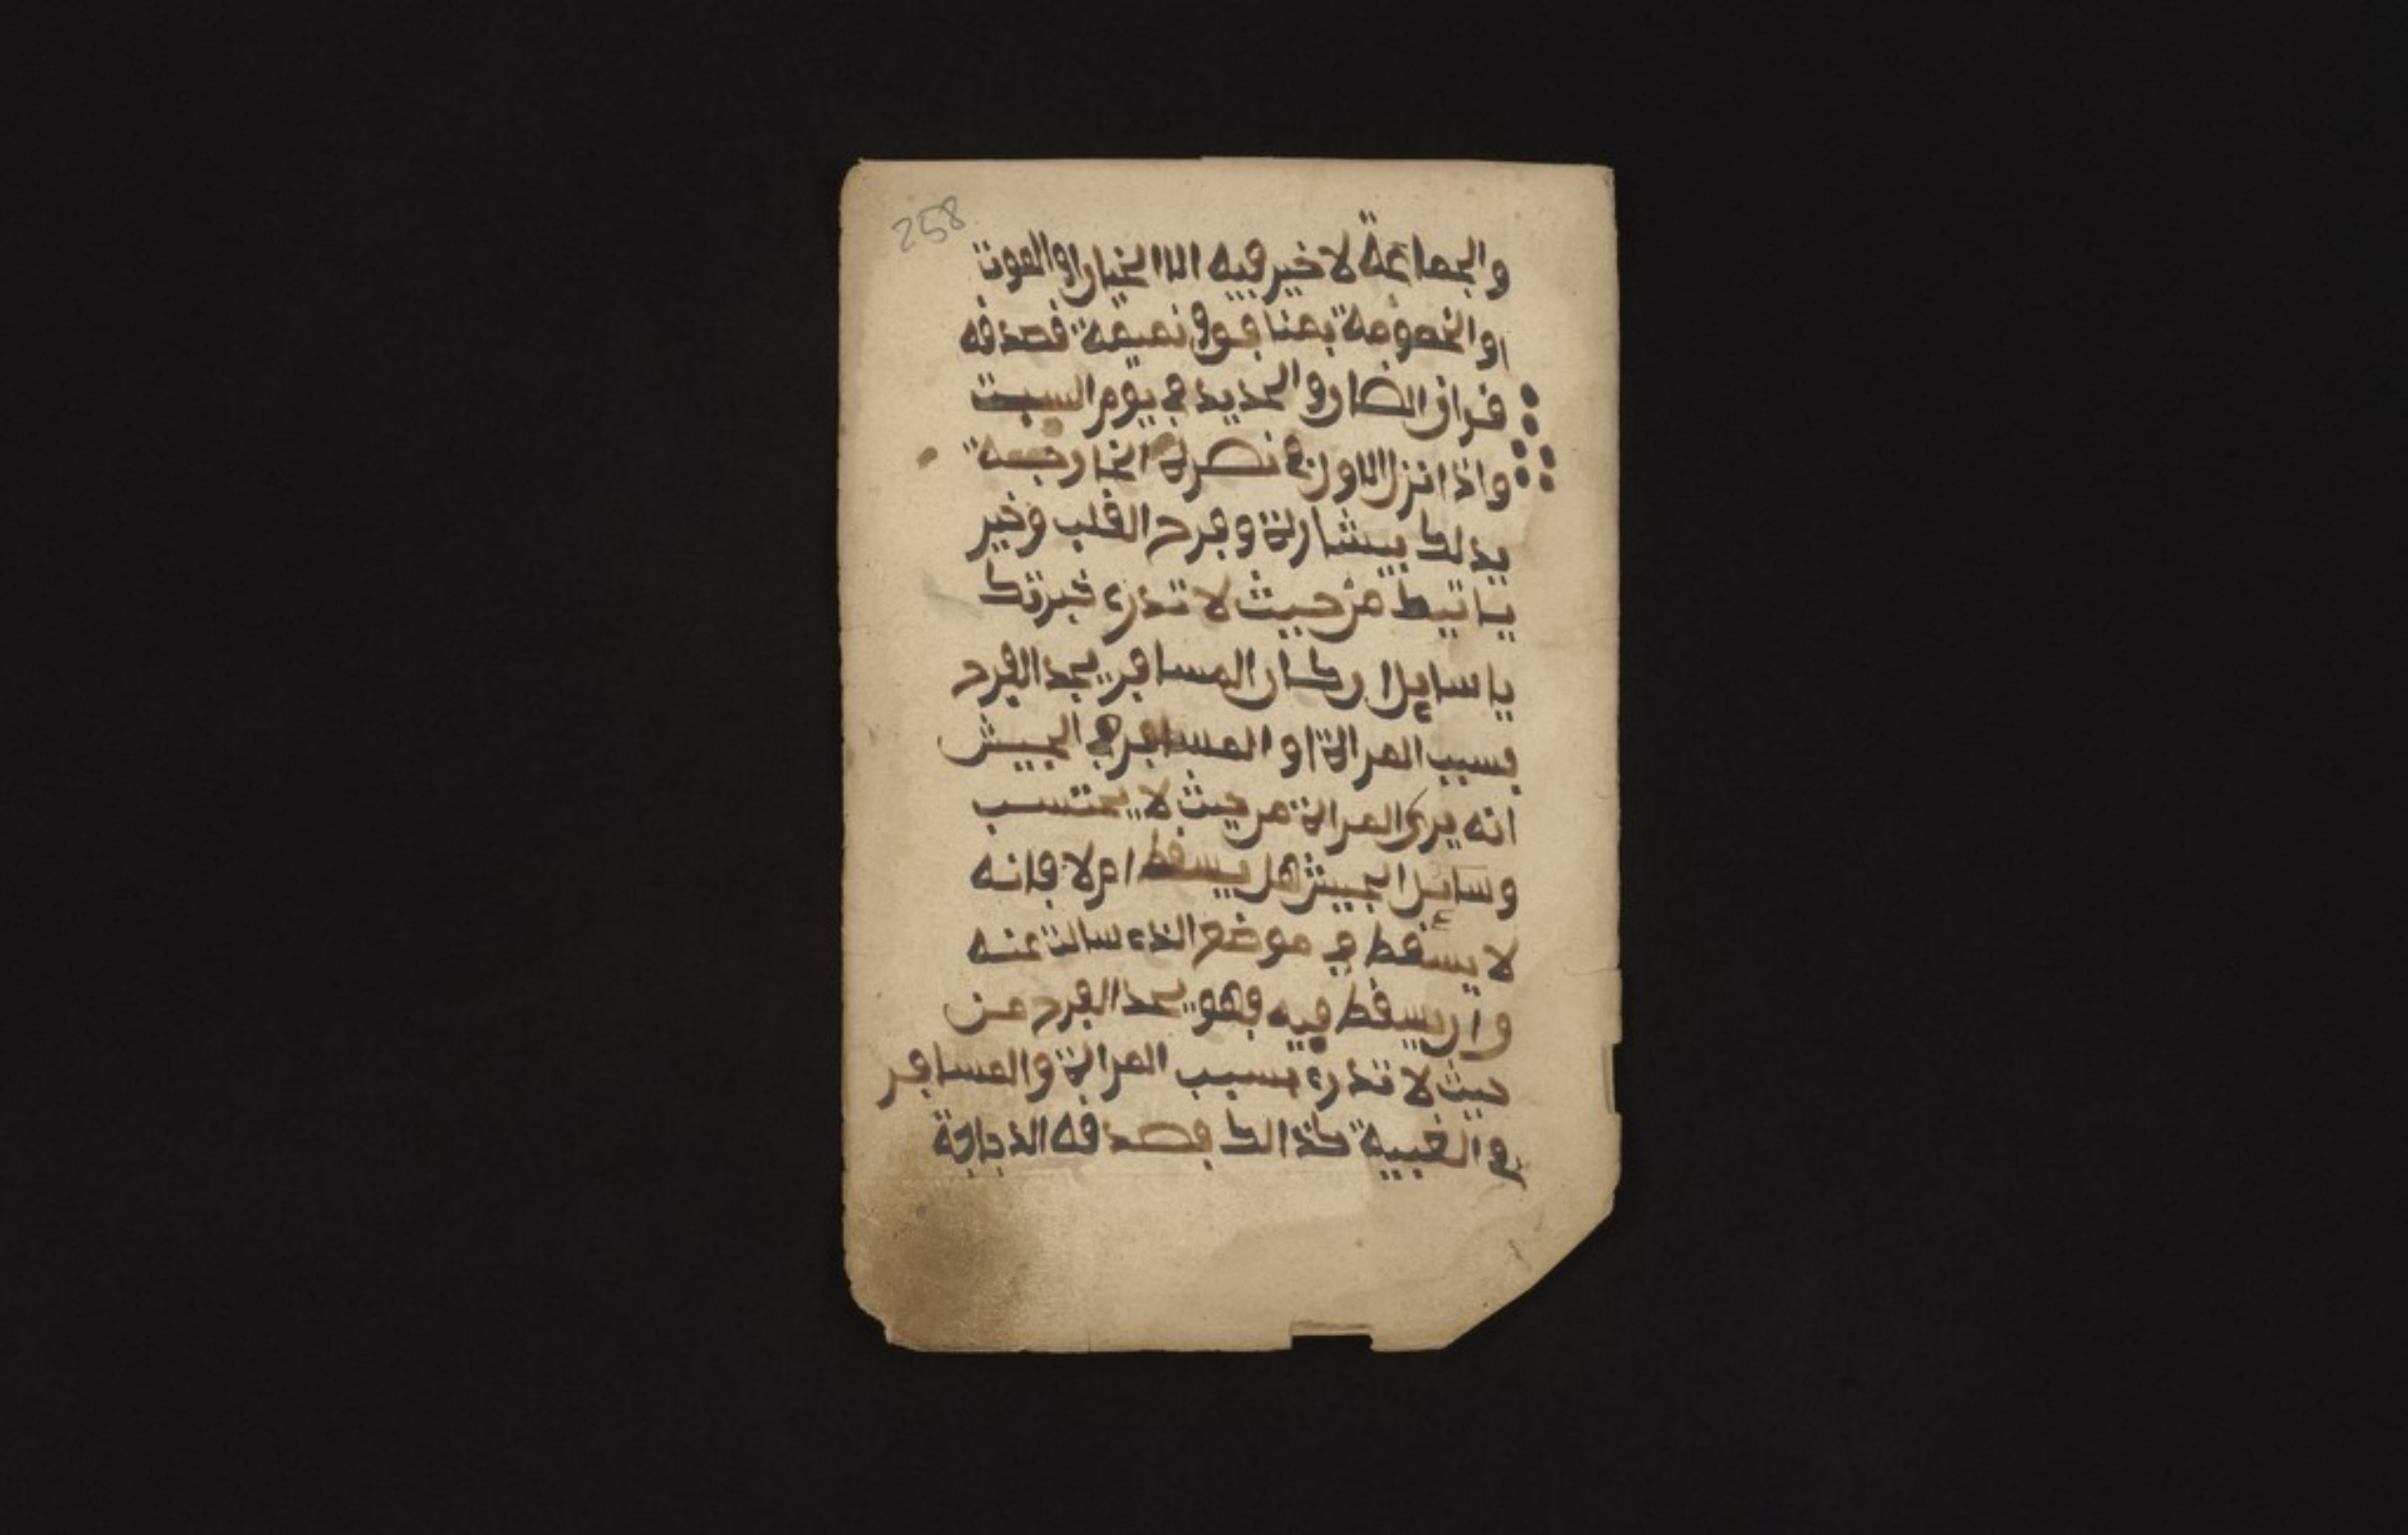 258
والجماعة لا خير فيه الا الخيار او الموت
او الخصومة بمنا فوق نميمة فصدقه
فراق الضار والحديد في يوم السبت
واذا نزل الاول في نصرة الخارجة
يدلك ببشارة وفرح القلب وخير
ياتيك من حيث لا تدرى خيرتك
يا سايل ان كان المسافر يجد الفرح
بسبب المراة او المسافر في الجيش
انه يرى المراة من حيث لا يحتسب
وسايل الجيش هل يسقط ام لا فانه
لا يسقط في موضع الذى سالت عنه
وان يسقط فيه فهو يجد الفرح من
حيث لا تدرى بسبب المراة والمسافر
والغيبة كذالك فصدقه الدجاجة